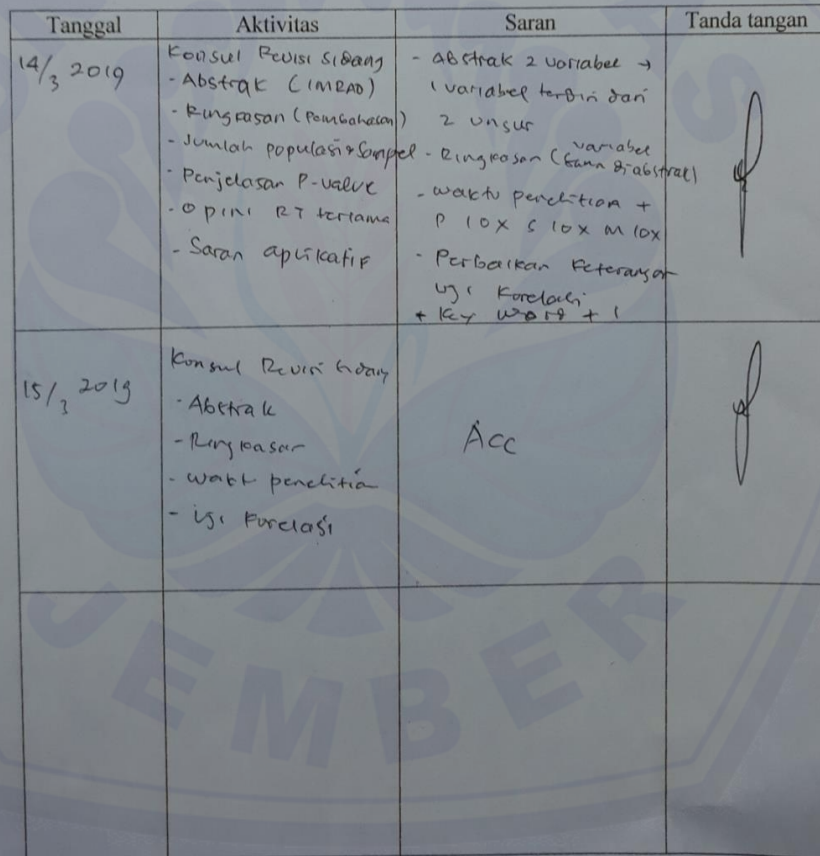 Tanggal Aktivitas Saran Tanda tangan
14/3 2019
Konsul Revisi Sidang
- Abstrak (IMRAD)
- Ringkasan (Pembahasan)
- Jumlah populasi & Sampel
- Penjelasan P-value
- Opini RT terlama
- Saran aplikatif
- Abstrak 2 variabel →
1 variabel terdiri dari
2 unsur
- Ringkasan (variabel sama di abstrak)
- waktu penelitian +
P 10x S 10x M 10x
- Perbaikan keterangan
uji korelasi
+ key word + 1
15/3 2019
Konsul Revisi Sidang
- Abstrak
- Ringkasan
- waktu penelitian
- uji korelasi
Acc
JEMBER